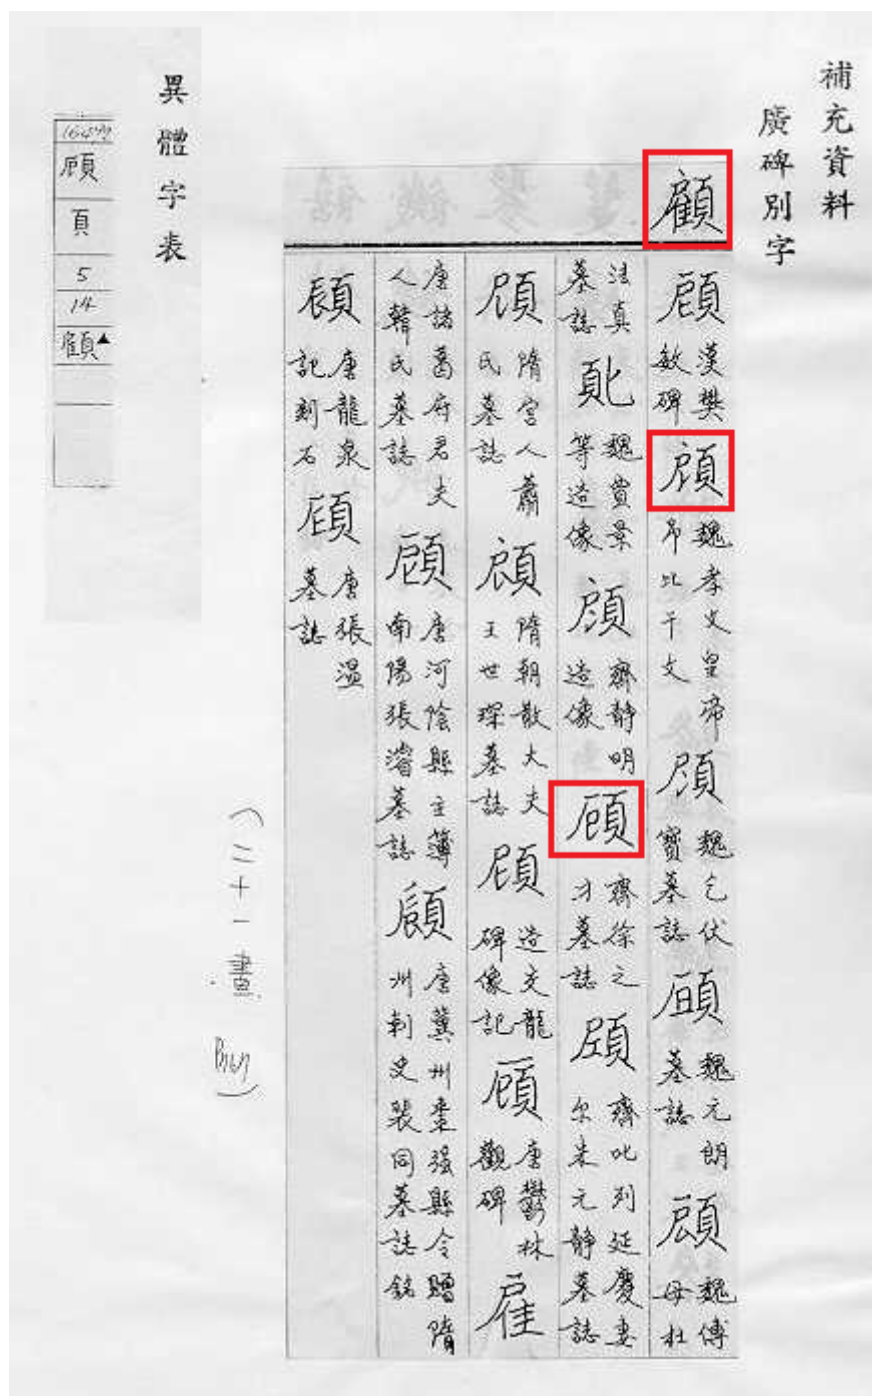 補充資料
廣碑別字
顧
漢樊敏碑 魏孝文皇帝弔比干文 魏乞伏寶墓誌 魏元朗墓誌 魏傅母杜
法真墓誌 魏賞景等造像 齊靜明造像 齊徐之才墓誌 齊叱列延慶妻尒朱元靜墓誌
隋宮人蕭氏墓誌 隋朝散大夫王世琛墓誌 造交龍碑像記 唐鬱林觀碑 雇
唐諸葛府君夫人韓氏墓誌 唐河陰縣主簿南陽張濬墓誌 唐冀州棗强縣令贈隋州刺史裴同墓誌銘
唐龍泉記刻石 唐張温墓誌
(二十一畫)
異體字表
頁
5
14